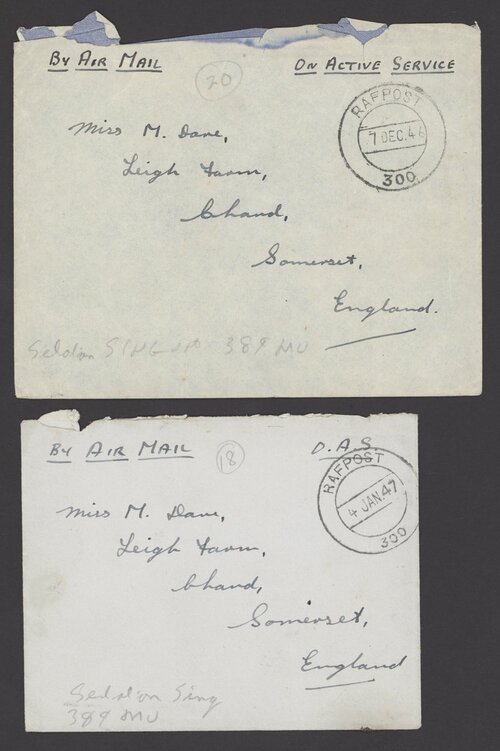 By AIR MAIL
ON ACTIVE SERVICE
20
RAFPOST
7 DEC. 46
300
Miss M. Dane,
Leigh Farm,
Chard,
Somerset,
England.
Seldon SING 389 MU
By AIR MAIL
18
O.A.S.
RAFPOST
4 JAN. 47
300
Miss M. Dane,
Leigh Farm,
Chard,
Somerset,
England
Seddon Sing
389 MU